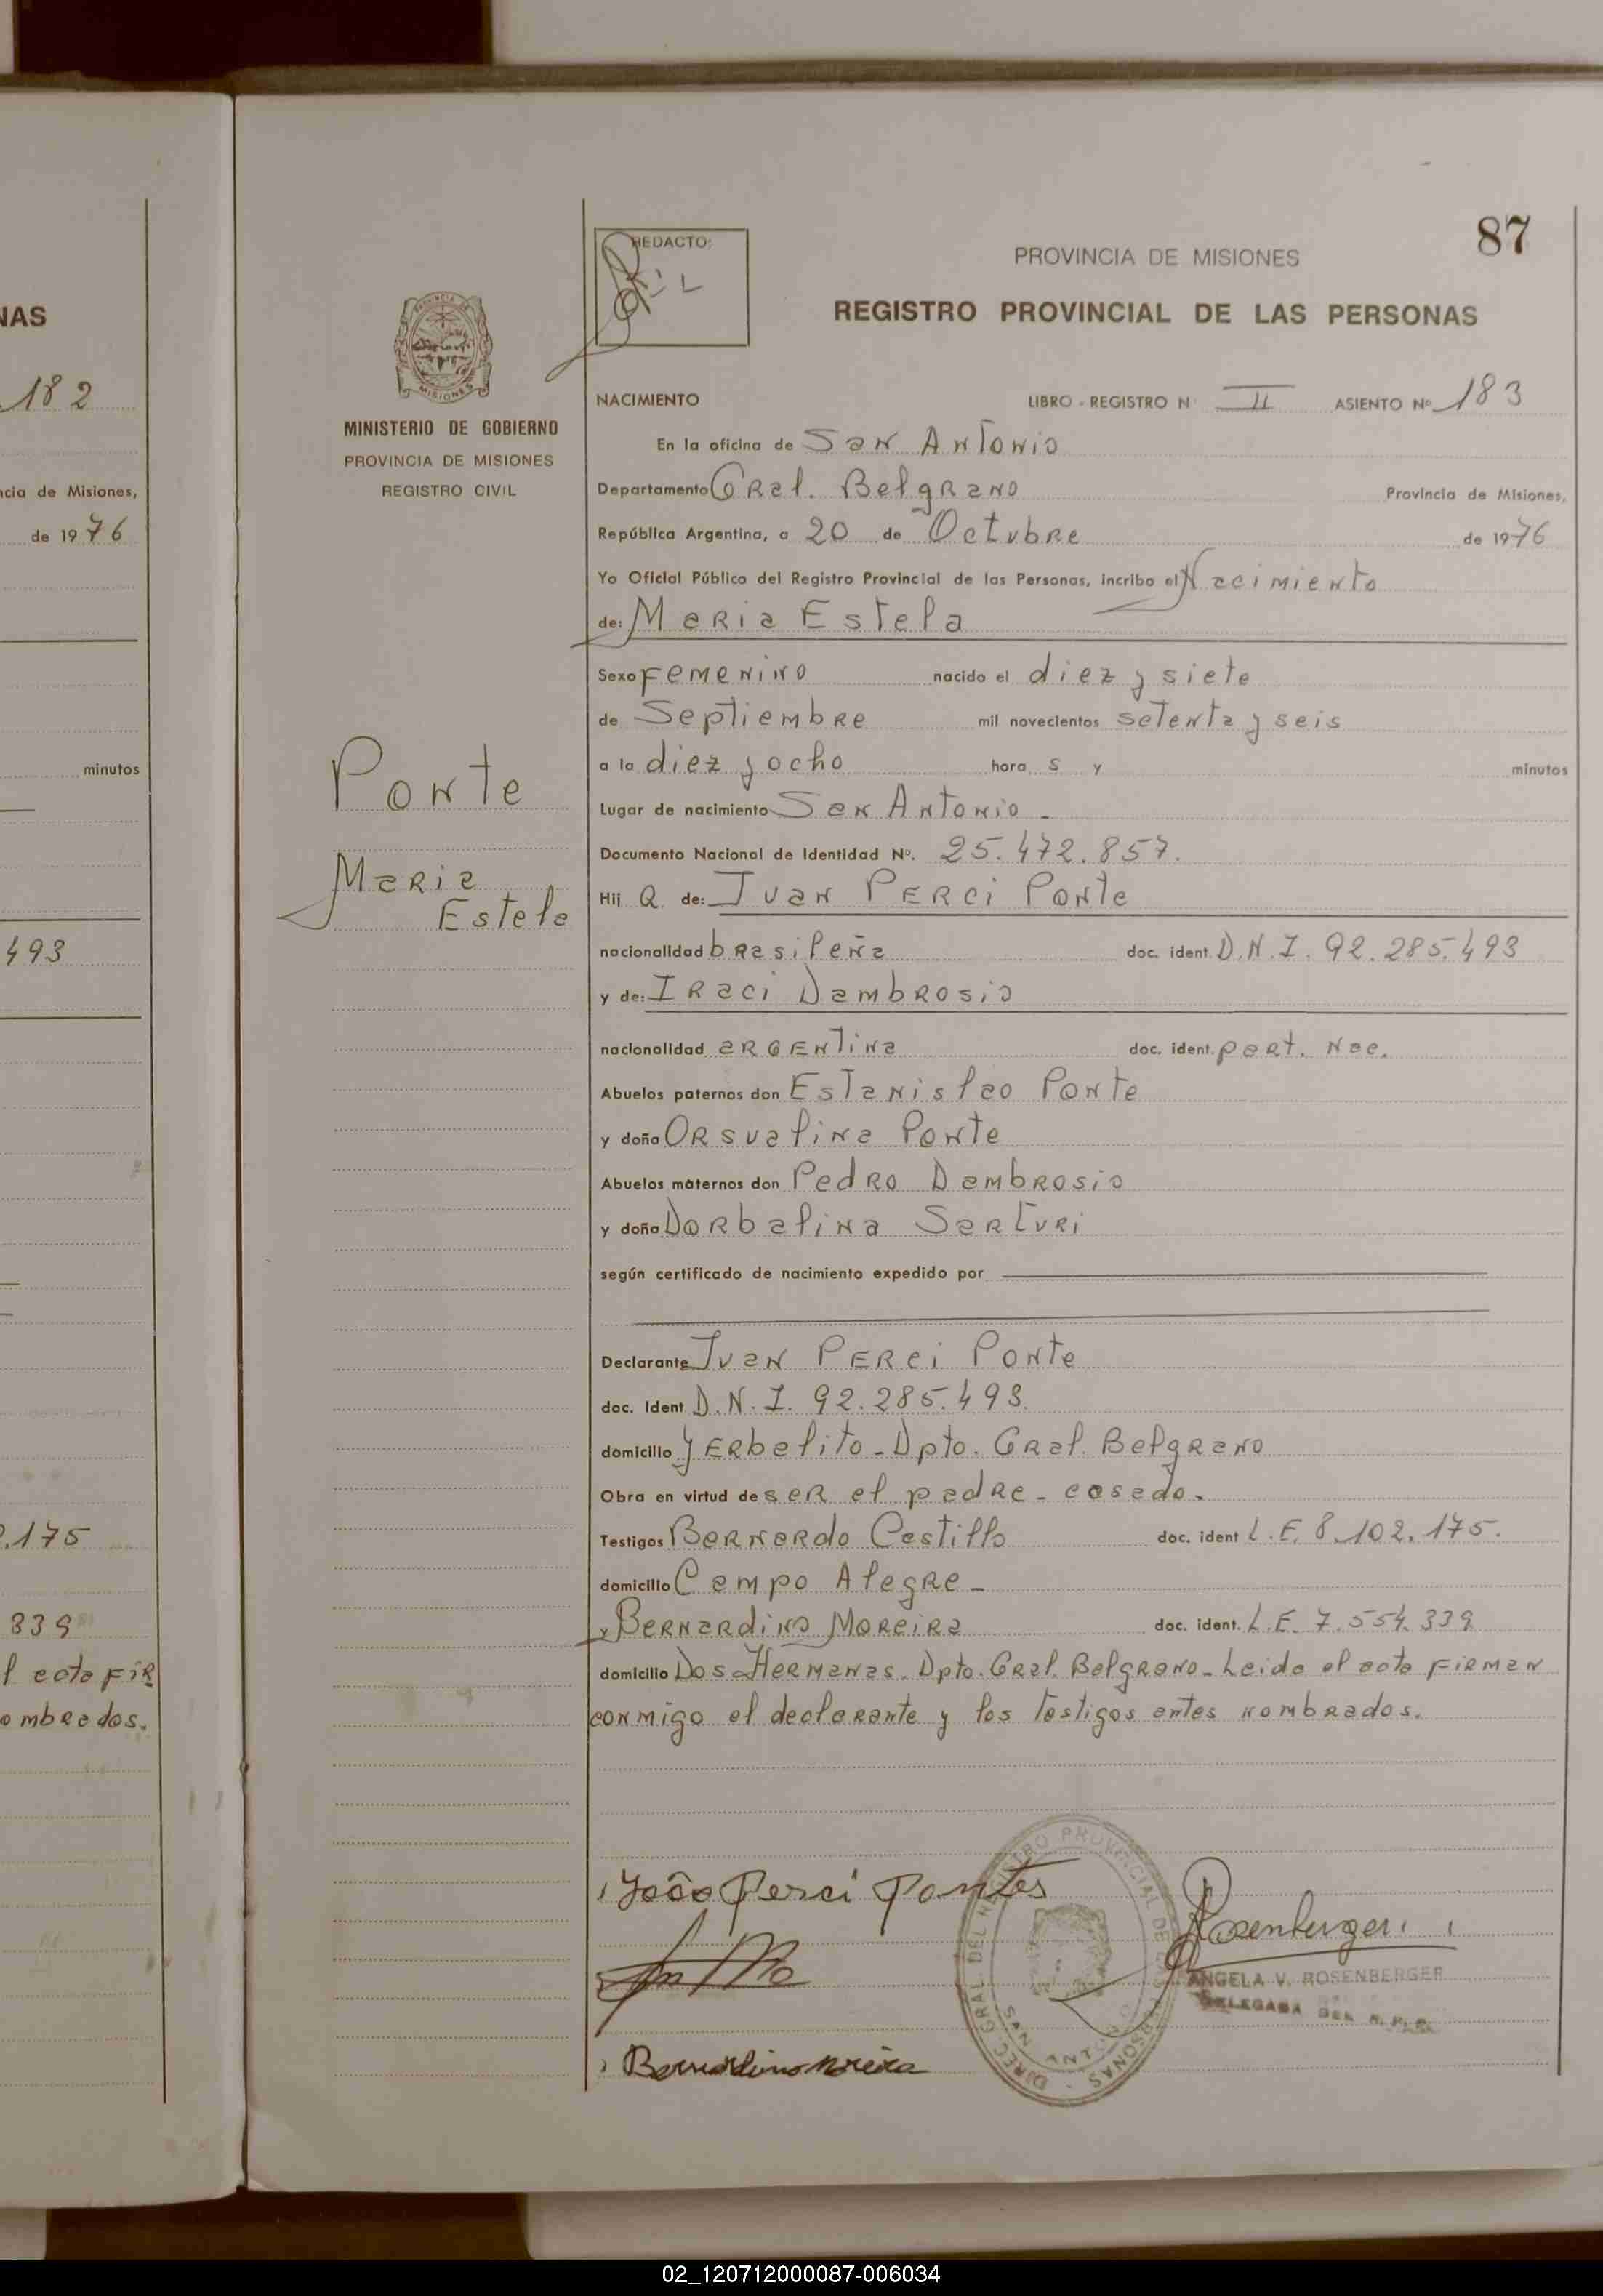 NAS
182
ncia de Misiones,
de 1976
minutos
493
.175
839
l acta FIR
ombrados.
87
REDACTO:
PROVINCIA DE MISIONES
REGISTRO PROVINCIAL DE LAS PERSONAS
MINISTERIO DE GOBIERNO
PROVINCIA DE MISIONES
REGISTRO CIVIL
Ponte
Maria
Estela
NACIMIENTO LIBRO - REGISTRO N° II ASIENTO Nº 183
En la oficina de San Antonio
Departamento Gral. Belgrano Provincia de Misiones,
República Argentina, a 20 de Octubre de 1976
Yo Oficial Público del Registro Provincial de las Personas, incribo el Nacimiento
de: Maria Estela
Sexo Femenino nacido el diez y siete
de Septiembre mil novecientos setenta y seis
a la diez y ocho hora s y minutos
Lugar de nacimiento San Antonio -
Documento Nacional de Identidad Nº. 25.472.857.
Hij a de: Juan Perci Ponte
nacionalidad brasileña doc. ident. D.N.I. 92.285.493
y de: Iraci Dambrosio
nacionalidad argentina doc. ident. part. Nac.
Abuelos paternos don Estanislao Ponte
y doña Orsualina Ponte
Abuelos maternos don Pedro Dambrosio
y doña Dorbalina Sarturi
según certificado de nacimiento expedido por
Declarante Juan Perci Ponte
doc. Ident D.N.I. 92.285.493.
domicilio Yerbalito - Dpto. Gral. Belgrano
Obra en virtud de ser el padre - casado.
Testigos Bernardo Castillo doc. ident L.E. 8.102.175.
domicilio Campo Alegre -
y Bernardino Moreira doc. ident. L.E. 7.554.339
domicilio Dos Hermanas - Dpto. Gral. Belgrano - Leida el acta firman
conmigo el declarante y los testigos antes nombrados.
João Perci Pontes
Rosenberger
ANGELA V. ROSENBERGER
DELEGADA DEL R. P. P.
Bernardino Moreira
DIREC. GRAL DEL REGISTRO PROVINCIAL DE LAS PERSONAS -
SAN ANTONIO
02_120712000087-006034